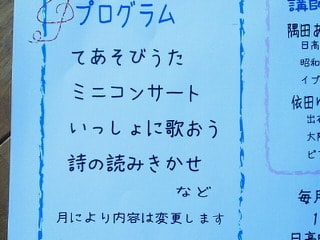 プログラム
てあそびうた
ミニコンサート
いっしょに歌おう
詩の読みきかせ
など
月により内容は変更します
講師
隅田あ
日高
昭和
イブ
依田
出
大阪
ピア
毎月
1
日高